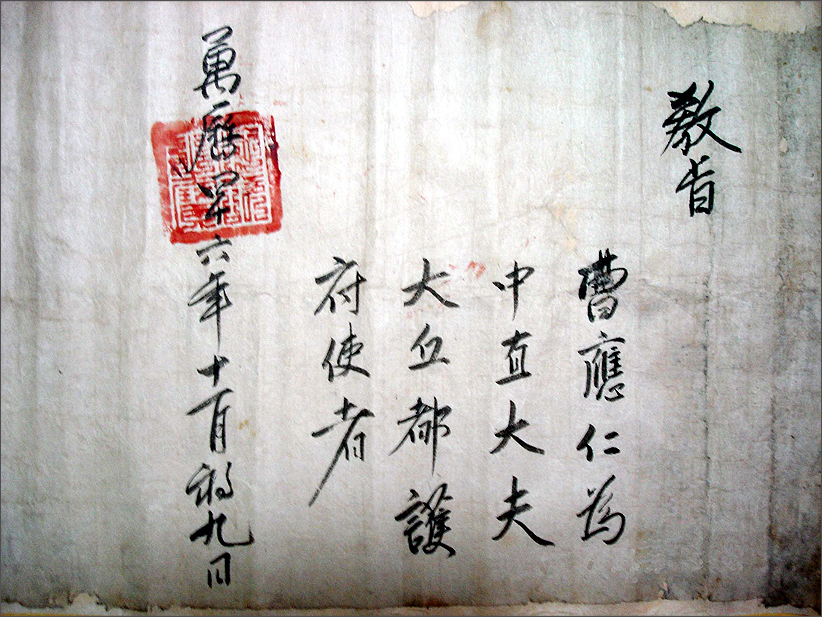 敎旨
曹應仁為
中直大夫
大丘都護
府使者
萬曆四十六年十一月初九日